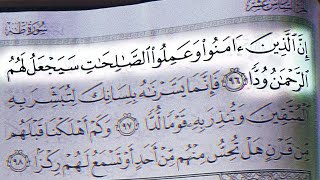 الجزء السادس عشر سُورَةُ طه
إِنَّ ٱلَّذِينَ ءَامَنُوا۟ وَعَمِلُوا۟ ٱلصَّٰلِحَٰتِ سَيَجْعَلُ لَهُمُ
ٱلرَّحْمَٰنُ وُدًّا ٩٦ فَإِنَّمَا يَسَّرْنَٰهُ بِلِسَانِكَ لِتُبَشِّرَ بِهِ
ٱلْمُتَّقِينَ وَتُنذِرَ بِهِۦ قَوْمًا لُّدًّا ٩٧ وَكَمْ أَهْلَكْنَا قَبْلَهُم
مِّن قَرْنٍ هَلْ تُحِسُّ مِنْهُم مِّنْ أَحَدٍ أَوْ تَسْمَعُ لَهُمْ رِكْزًۢا ٩٨